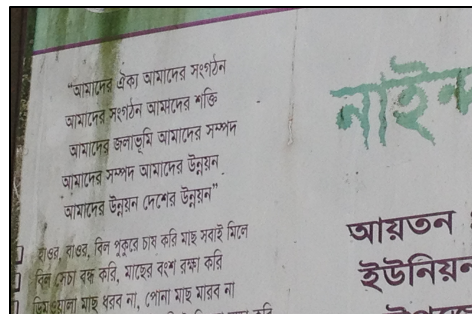 "আমাদের ঐক্য আমাদের সংগঠন
আমাদের সংগঠন আমাদের শক্তি
আমাদের জলাভূমি আমাদের সম্পদ
আমাদের সম্পদ আমাদের উন্নয়ন
আমাদের উন্নয়ন দেশের উন্নয়ন"
হাওর বাওর, বিল পুকুরে চাষ করি মাছ সবাই মিলে
বিল সেচা বন্ধ করি, মাছের বংশ রক্ষা করি
ডিমওয়ালা মাছ ধরব না, পোনা মাছ মারব না
নাইন্দ
আয়তন
ইউনিয়ন